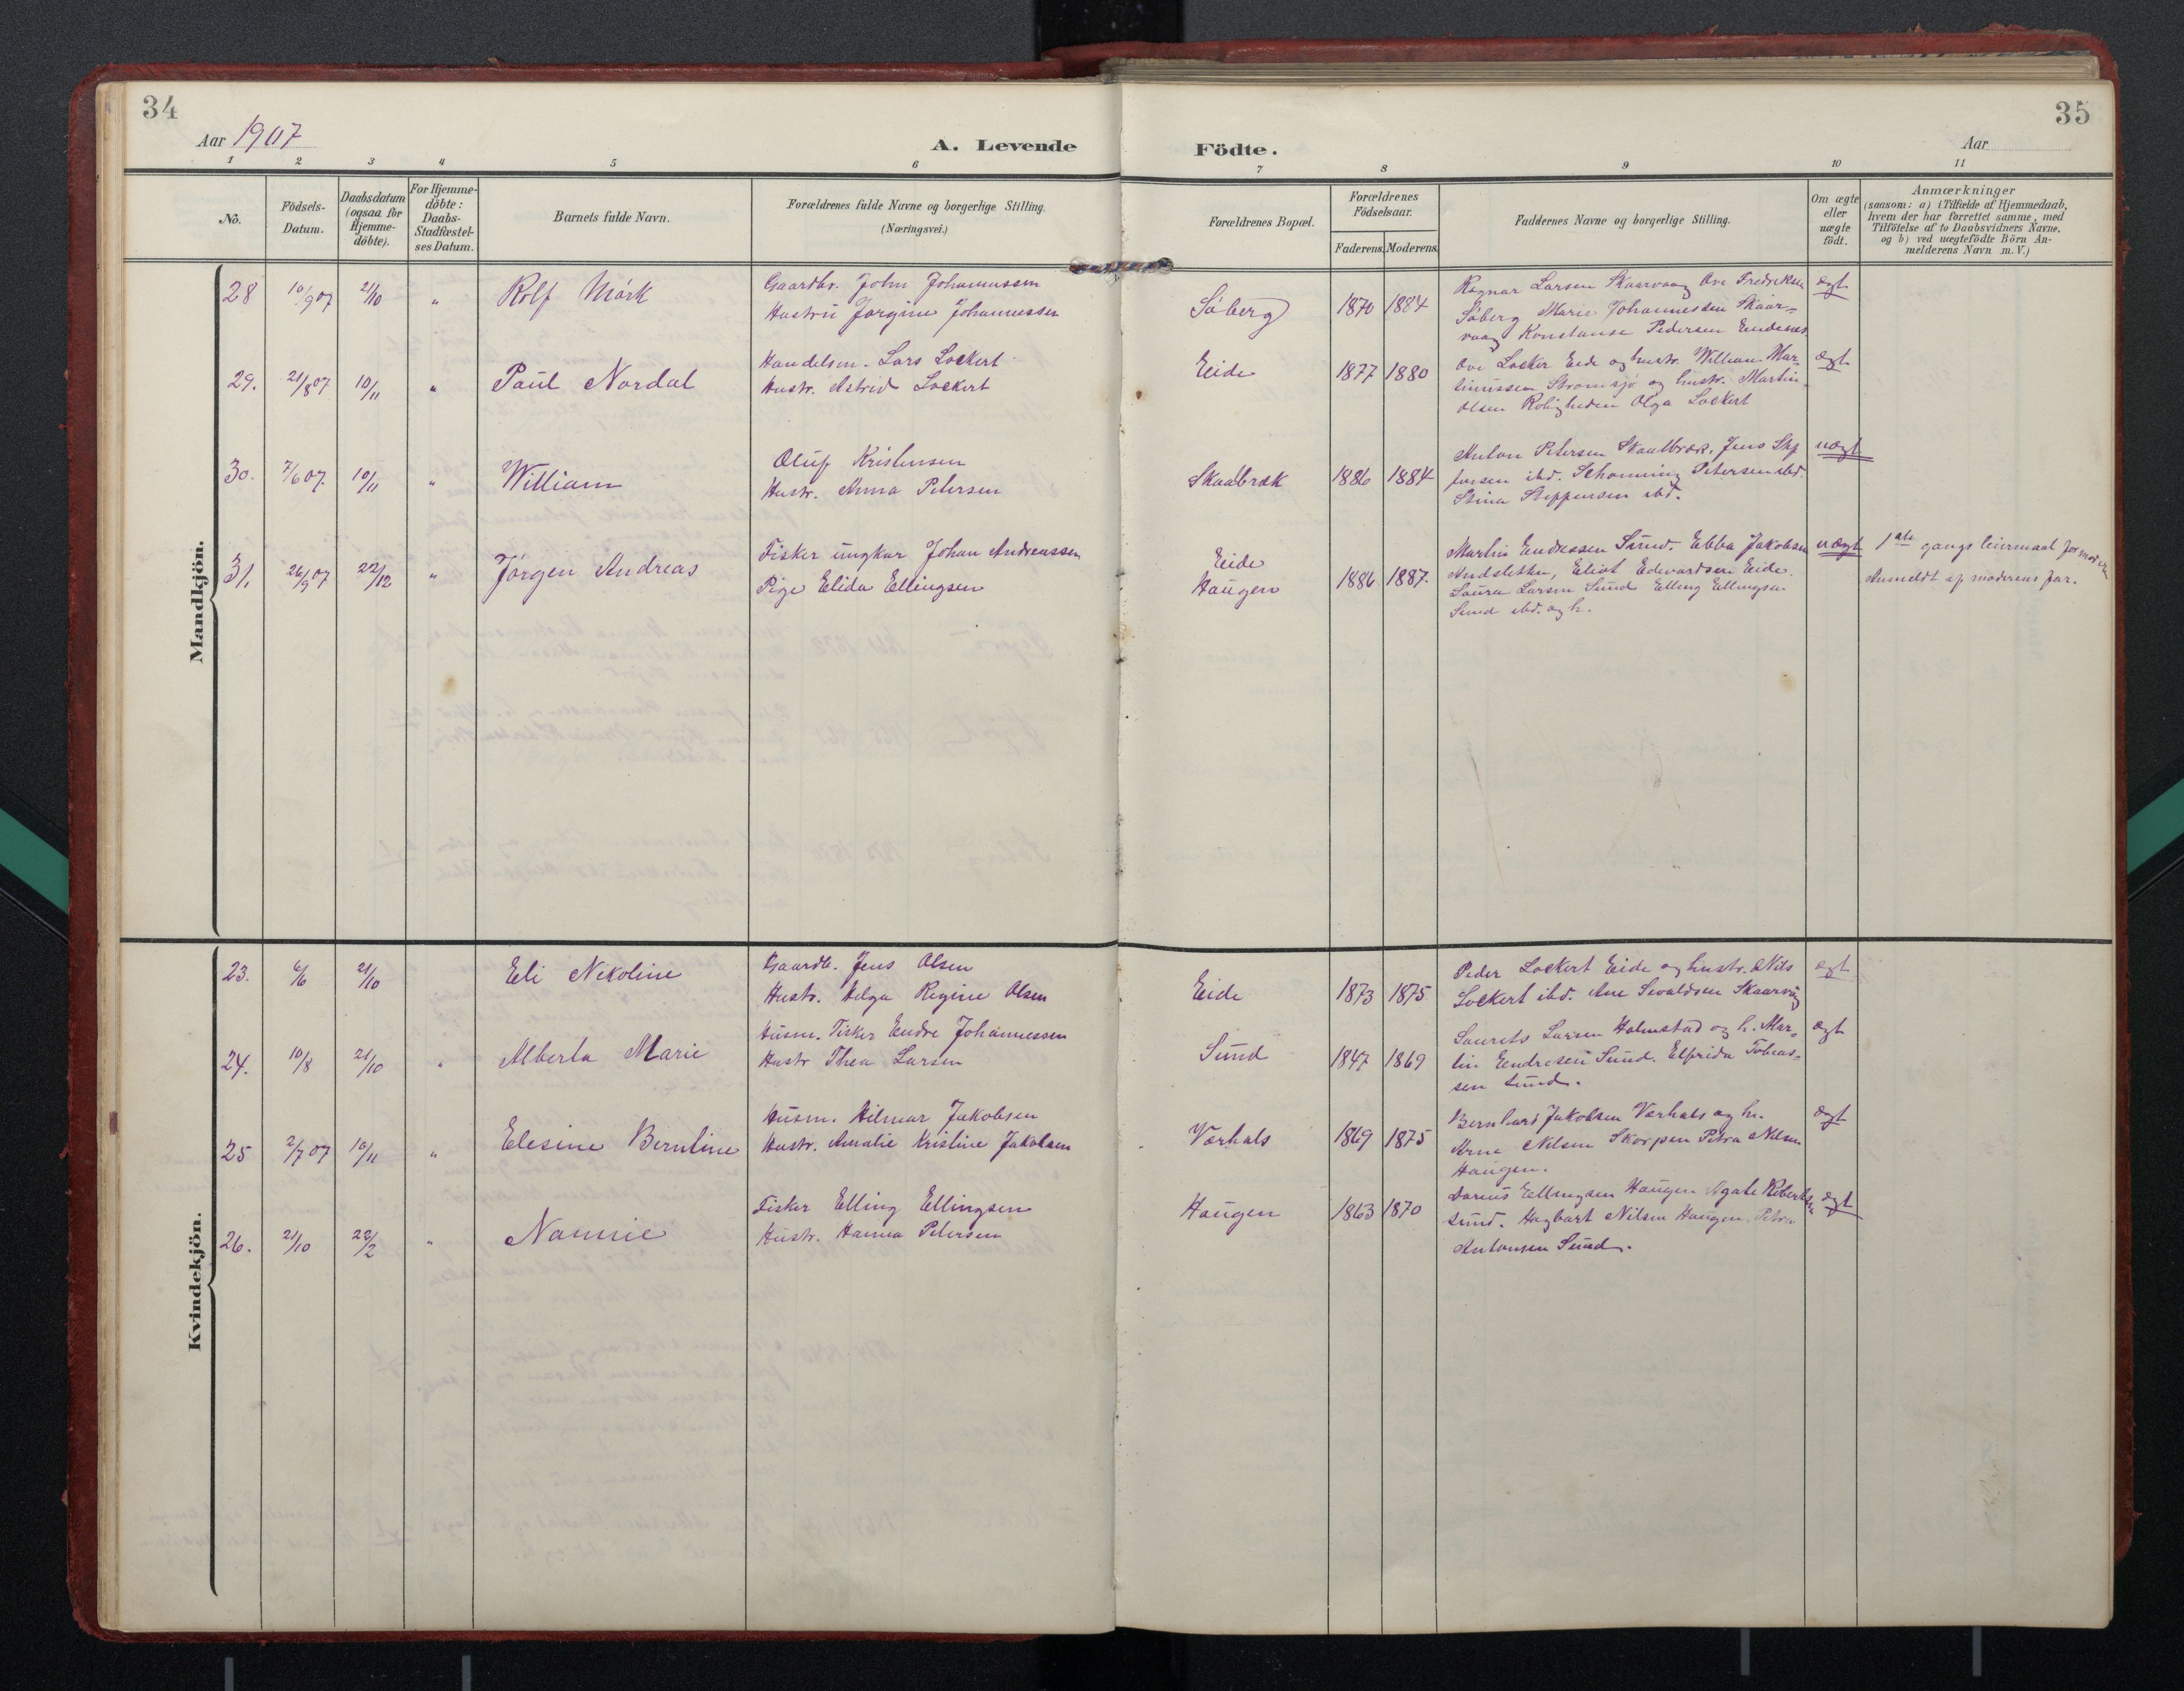 34
Aar 1907
A. Levende
1 2 3 4 5 6
No.
Födsels-
Datum.
Daabsdatum
(ogsaa for
Hjemme-
döbte).
For Hjemme-
döbte:
Daabs-
Stadfæstel-
ses Datum.
Barnets fulde Navn.
Forældrenes fulde Navne og borgerlige Stilling.
(Næringsvei.)
Mandkjön.
28 10/9 07 21/10 " Rolf Mörk
Gaardbr. John Johannessen
Hustru Jorgine Johannessen
29. 21/8 07 10/11 " Paul Nordal
Handelsm. Lars Lockert
Hustr. Astrid Lockert
30. 7/6 07. 10/11 " William
Oluf Kristensen
Hustr. Anna Petersen
31. 26/9 07 22/12 " Jörgen Andreas
Fisker ungkar Johan Andreassen
Pige Elida Ellingsen
Kvindekjön.
23. 6/6 21/10 Eli Nikoline
Gaardb. Jens Olsen
Hustr. Helga Regine Olsen
24. 10/8 21/10 " Alberta Marie
Husm. Fisker Endre Johannessen
Hustr Thea Larsen
25 2/7 07 10/11 " Elesine Berntine
Husm. Hilmar Jakobsen
Hustr. Amalie Kristine Jakobsen
26. 21/10 22/2 " Nannie
Fisker Elling Ellingsen
Hustr. Hanna Petersen
35
Aar
Födte.
7 8 9 10 11
Forældrenes Bopæl.
Forældrenes
Födselsaar.
Faderens. Moderens.
Faddernes Navne og borgerlige Stilling.
Om ægte
eller
uægte
födt.
Anmærkninger
(saasom: a) i Tilfælde af Hjemmedaab,
hvem der har forrettet samme, med
Tilföielse af to Daabsvidners Navne,
og b) ved uægtefödte Börn An-
melderens Navn m. V.)
Söberg 1870 1884
Ragnar Larsen Skaarvaag Ove Fredriksen
Söberg Marie Johannessen Skaar-
vaag Konstanse Pedersen
ægt
Eide 1877 1880
Ove Locker Eide og hustr. William Mar-
tinussen Strømsjø og hustr. Martin
Olsen Roligheden Olga Lockert
ægt
Skaalbrek 1886 1884
Anton Petersen Skaalbrek, Jens
ibd. Schønning Petersen ibd.
Stina Steffensen ibd.
uægt
Eide
Haugen 1886 1887.
Martin Endressen Sund. Ebba Jakobsen
Andsletten, Eliot Edwardsen Eide.
Laura Larsen Sund Elling Ellingsen
Sund ibd. og h.
uægt
1ste gangs leiermaal for moderen
Anmeldt af moderens far.
Eide 1873 1875
Peder Lockert Eide og hustr. Nils
Lockert ibd. Ane Sivaldsen Skaarvåg
ægt
Sund 1847 1869
Laurits Larsen Holmstad og h. Mar-
tin Endresen Sund. Elfrida Tobias-
sen Sund.
ægt
Værhals 1869 1875
Bernhard Jakobsen Værhals og h.
Arne Nilsen Skorpen Petra Nilsen
Haugen.
ægt
Haugen 1863 1870
Darius Ellingsen Haugen Agate Robertsen
Sund. Hagbart Nilsen Haugen. Petra
Antonsen Sund.
ægt